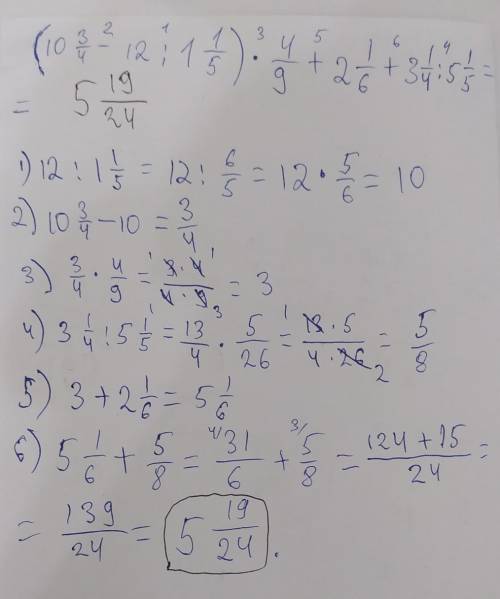 (10 3/4 - 12 : 1 1/5) · 4/9 + 2 1/6 + 3 1/4 : 5 1/5 =
= 5 19/24
1) 12 : 1 1/5 = 12 : 6/5 = 12 · 5/6 = 10
2) 10 3/4 - 10 = 3/4
3) 3/4 · 4/9 = 3·4/4·9 = 3
4) 3 1/4 : 5 1/5 = 13/4 · 5/26 = 13·5/4·26 = 5/8
5) 3 + 2 1/6 = 5 1/6
6) 5 1/6 + 5/8 = 31/6 + 5/8 = 124 + 15/24 =
= 139/24 = 5 19/24.